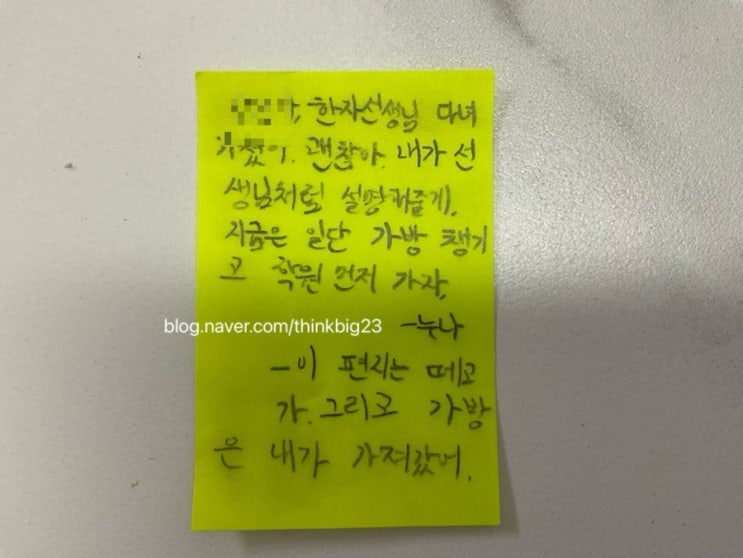 한자선생님 다녀
갔어. 괜찮아. 내가 선
생님처럼 설명해줄게.
지금은 일단 가방 챙기
고 학원 먼저 가자.
blog.naver.com/thinkbig23
-누나
-이 편지는 떼고
가. 그리고 가방
은 내가 가져갔어.